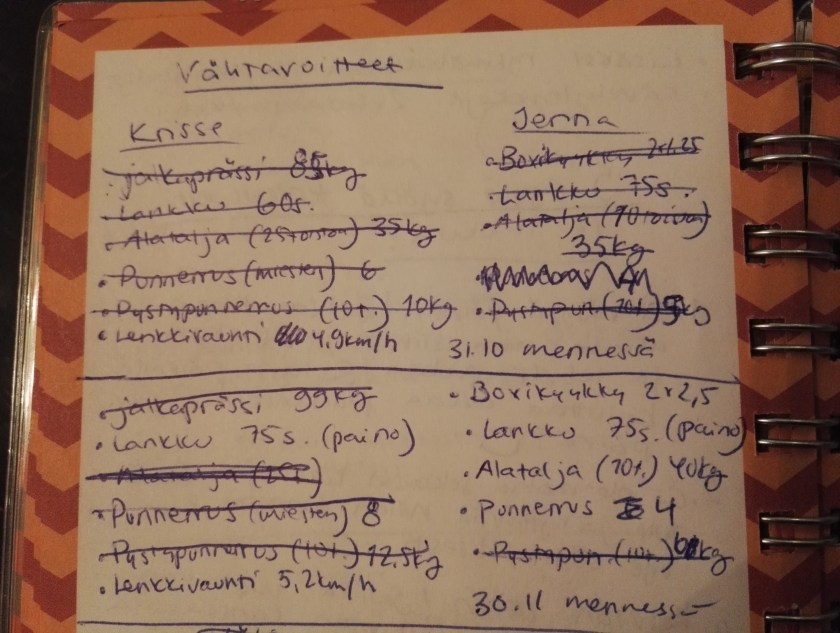 Vähtavoitteet
Krisse
jalkaprässi 85kg
Lankku 60s.
Alatalja (25 toiston) 35kg
Punnerrus (miesten) 6
Pystypunnerrus (10t.) 10kg
Lenkkivauhti 4,9km/h
Jenna
Boxikyykky 2x1,25
Lankku 75s.
Alatalja (10 toivon)
35kg
Pystypun. (10t.) kg
31.10 mennessä
jalkaprässi 99kg
Lankku 75s. (paino)
Alatalja
Punnerrus (miesten) 8
Pystypunnerrus (10t.) 12,5kg
Lenkkivauhti 5,2km/h
Boxikyykky 2x2,5
Lankku 75s. (paino)
Alatalja (10t.) 40kg
Punnerrus 4
Pystypun. (10t.) kg
30.11 mennessä